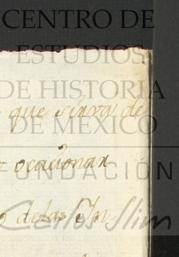 CENTRO DE
ESTUDIOS
DE HISTORIA
que sirva de
DE MÉXICO
ocacionan
FUNDACIÓN
de las
Carlos Slim